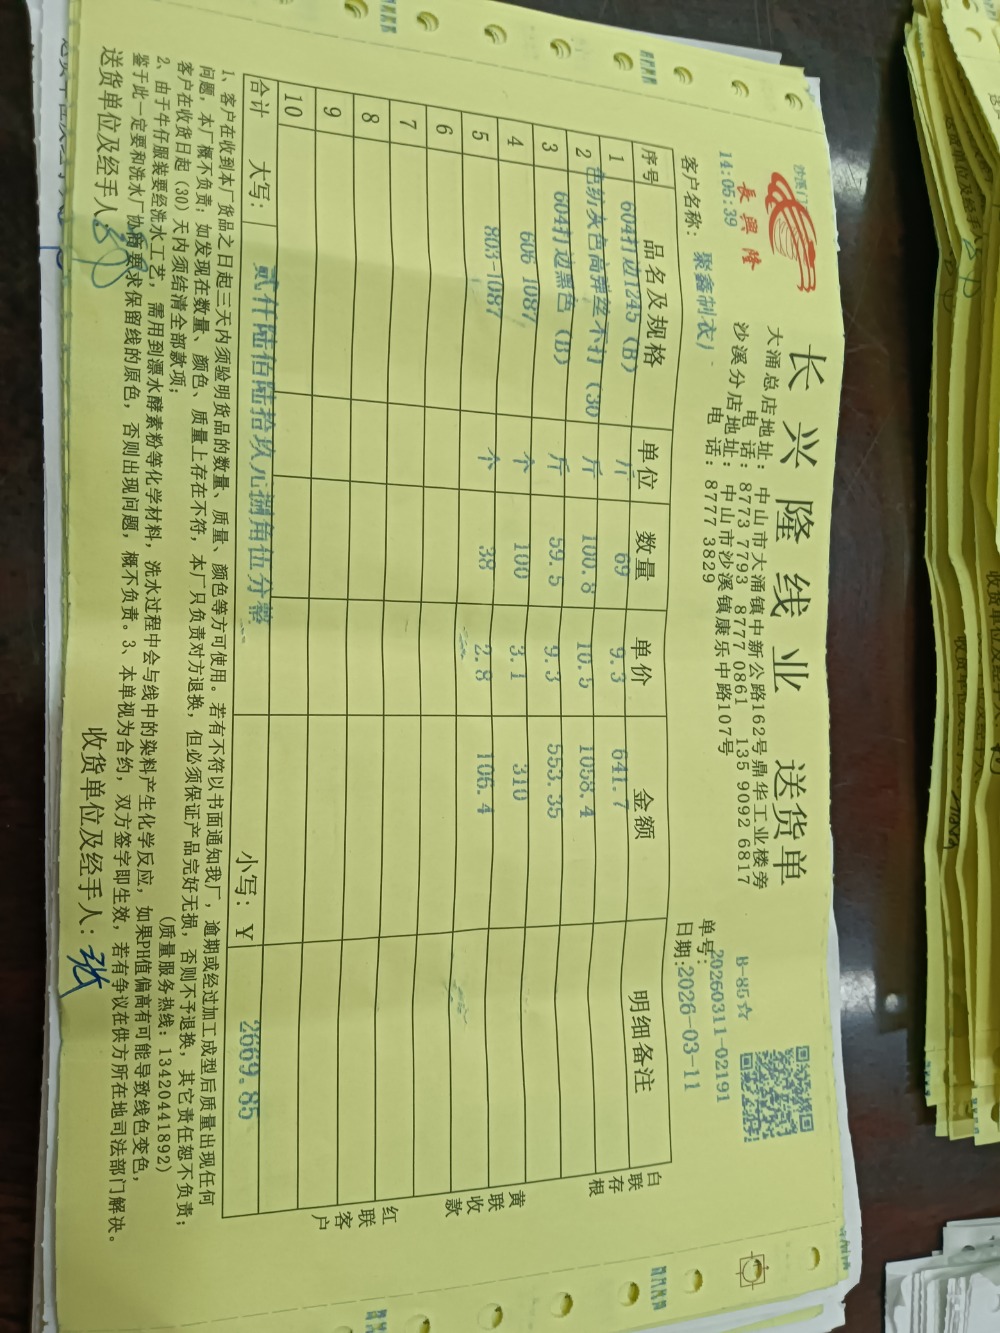 沙溪门
長興隆
14:05:39
长兴隆线业 送货单
大涌总店地址: 中山市大涌镇中新公路162号鼎华工业楼旁
电 话: 8773 7793 8777 0861 135 9092 6817
沙溪分店地址: 中山市沙溪镇康乐中路107号
电 话: 8777 3829
B-85☆
单号: 20260311-02191
客户名称: 聚鑫制衣)
日期: 2026-03-11
序号 品名及规格 单位 数量 单价 金额 明细备注
1 604打边1245 (B) 斤 69 9.3 641.7
2 包纺灰色高弹丝不打 (30 斤 100.8 10.5 1058.4
3 604打边黑色 (B) 斤 59.5 9.3 553.35
4 606 1087 个 100 3.1 310
5 803-1087 个 38 2.8 106.4
6
7
8
9
10
合计 大写: 贰仟陆佰陆拾玖元捌角伍分整 小写: ¥ 2669.85
白联存根
黄联收款
红联客户
1、客户在收到本厂货品之日起三天内须验明货品的数量、质量、颜色等方可使用。若有不符以书面通知我厂, 逾期或经过加工成型后质量出现任何
问题, 本厂概不负责; 如发现在数量、颜色、质量上存在不符, 本厂只负责对方退换, 但必须保证产品完好无损, 否则不予退换, 其它责任恕不负责;
客户在收货日起 (30) 天内须结清全部款项; (质量服务热线: 13420441892)
2、由于牛仔服装要经洗水工艺, 需用到漂水酵素粉等化学材料, 洗水过程中会与线中的染料产生化学反应, 如果PH值偏高有可能导致线色变色,
鉴于此一定要和洗水厂协商要求保留线的原色, 否则出现问题, 概不负责。3、本单视为合约, 双方签字即生效, 若有争议在供方所在地司法部门解决。
送货单位及经手人: 收货单位及经手人: 张